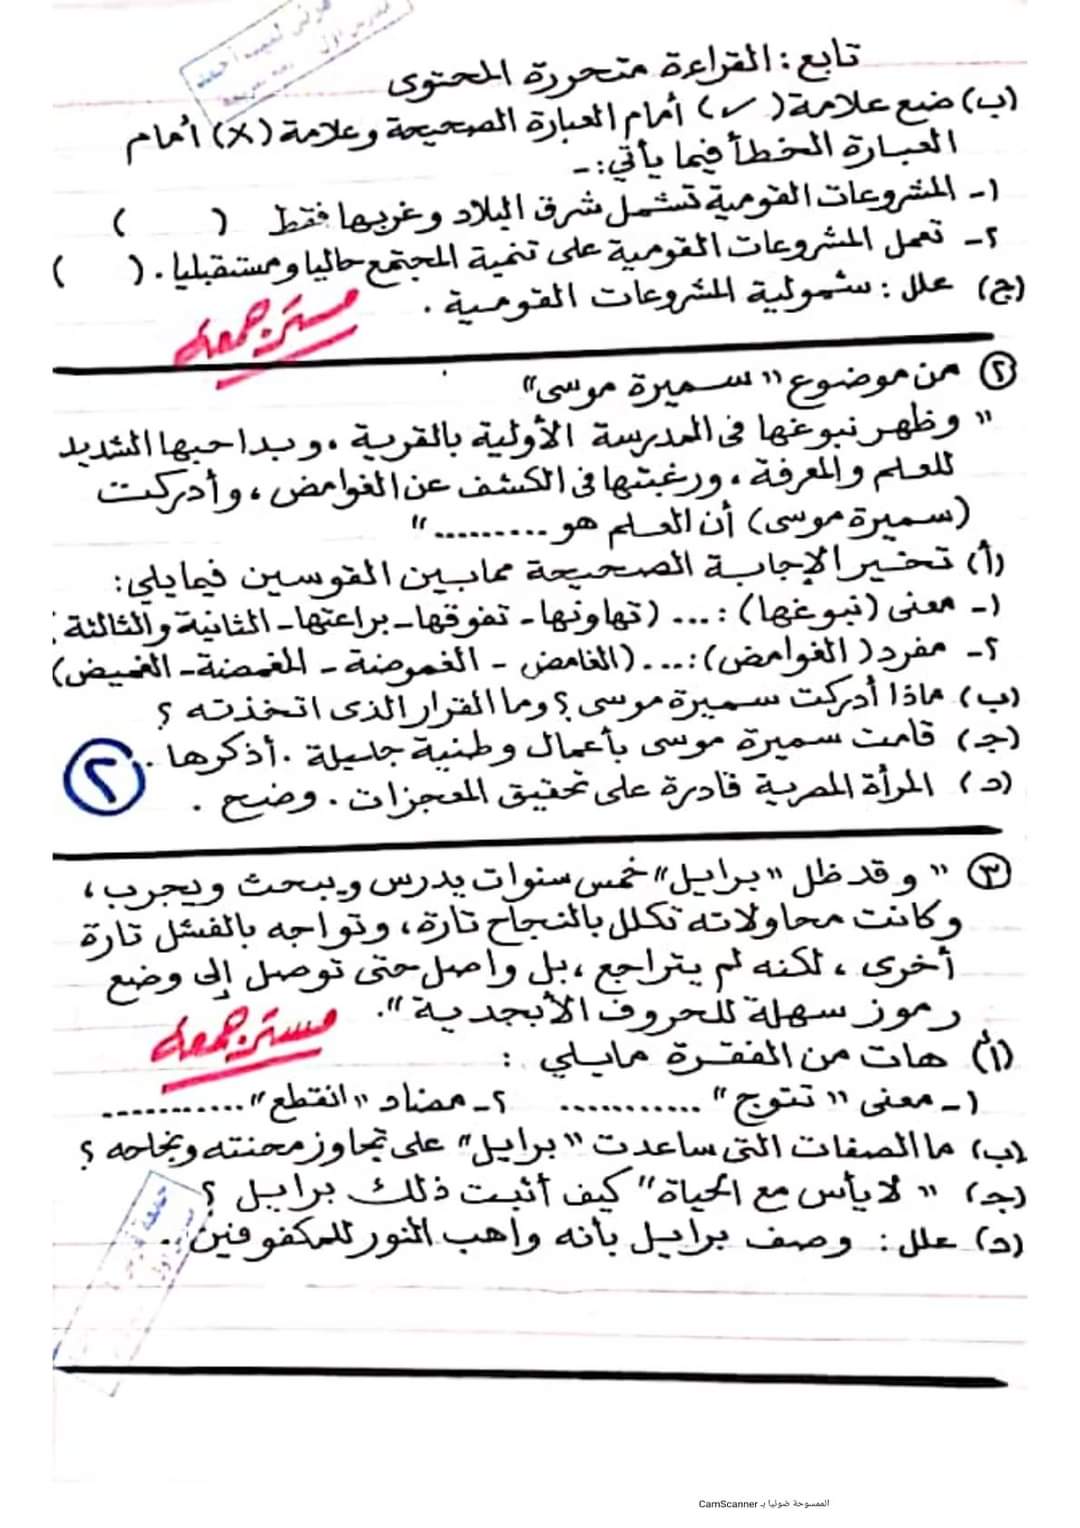 تابع: القراءة متحررة المحتوى
(ب) ضع علامة (✓) أمام العبارة الصحيحة وعلامة (X) أمام
العبارة الخطأ فيما يأتي:-
١- المشروعات القومية تشمل شرق البلاد وغربها فقط ( )
٢- تعمل المشروعات القومية على تنمية المجتمع حاليا ومستقبليا. ( )
(ج) علل: شمولية المشروعات القومية.
مستر جمعه
٢ من موضوع "سميرة موسى"
" وظهر نبوغها فى المدرسة الأولية بالقرية، وبدا حبها الشديد
للعلم والمعرفة، ورغبتها فى الكشف عن الغوامض، وأدركت
(سميرة موسى) أن العلم هو .........."
(أ) تخير الإجابة الصحيحة مما بين القوسين فيما يلي:
١- معنى (نبوغها): ... (تهاونها - تفوقها - براعتها - الثانية والثالثة)
٢- مفرد (الغوامض): ... (الغامض - الغموضة - المغمضة - الغميض)
(ب) ماذا أدركت سميرة موسى؟ وما القرار الذى اتخذته؟
(جـ) قامت سميرة موسى بأعمال وطنية جليلة. أذكرها.
(د) المرأة المصرية قادرة على تحقيق المعجزات. وضح.
٢
٣ " وقد ظل "برايل" خمس سنوات يدرس ويبحث ويجرب،
وكانت محاولاته تكلل بالنجاح تارة، وتواجه بالفشل تارة
أخرى، لكنه لم يتراجع، بل واصل حتى توصل إلى وضع
رموز سهلة للحروف الأبجدية".
مستر جمعه
(أ) هات من الفقرة مايلي:
١- معنى "تتوج" ............ ٢- مضاد "انقطع" ............
(ب) ما الصفات التى ساعدت "برايل" على تجاوز محنته ونجاحه؟
(جـ) " لا يأس مع الحياة" كيف أثبت ذلك برايل؟
(د) علل: وصف برايل بأنه واهب النور للمكفوفين.
الممسوحة ضوئيا بـ CamScanner